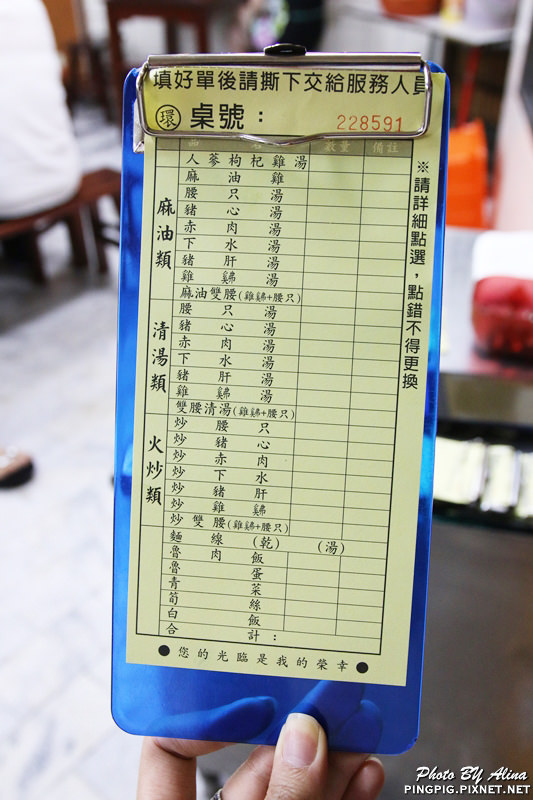 填好單後請撕下交給服務人員
環 桌號： 228591
品 名 數量 備註
人蔘枸杞雞湯
麻油類
麻油雞
腰只湯
豬心湯
赤肉湯
下水湯
豬肝湯
雞鵤湯
麻油雙腰(雞鵤+腰只)
清湯類
腰只湯
豬心湯
赤肉湯
下水湯
豬肝湯
雞鵤湯
雙腰清湯(雞鵤+腰只)
火炒類
炒腰只
炒豬心
炒赤肉
炒下水
炒豬肝
炒雞鵤
炒雙腰(雞鵤+腰只)
麵線 (乾) (湯)
魯肉飯
魯蛋
青菜
筍絲
白飯
合計：
※請詳細點選，點錯不得更換
●您的光臨是我的榮幸●
Photo BY Alina
PINGPIG.PIXNET.NET